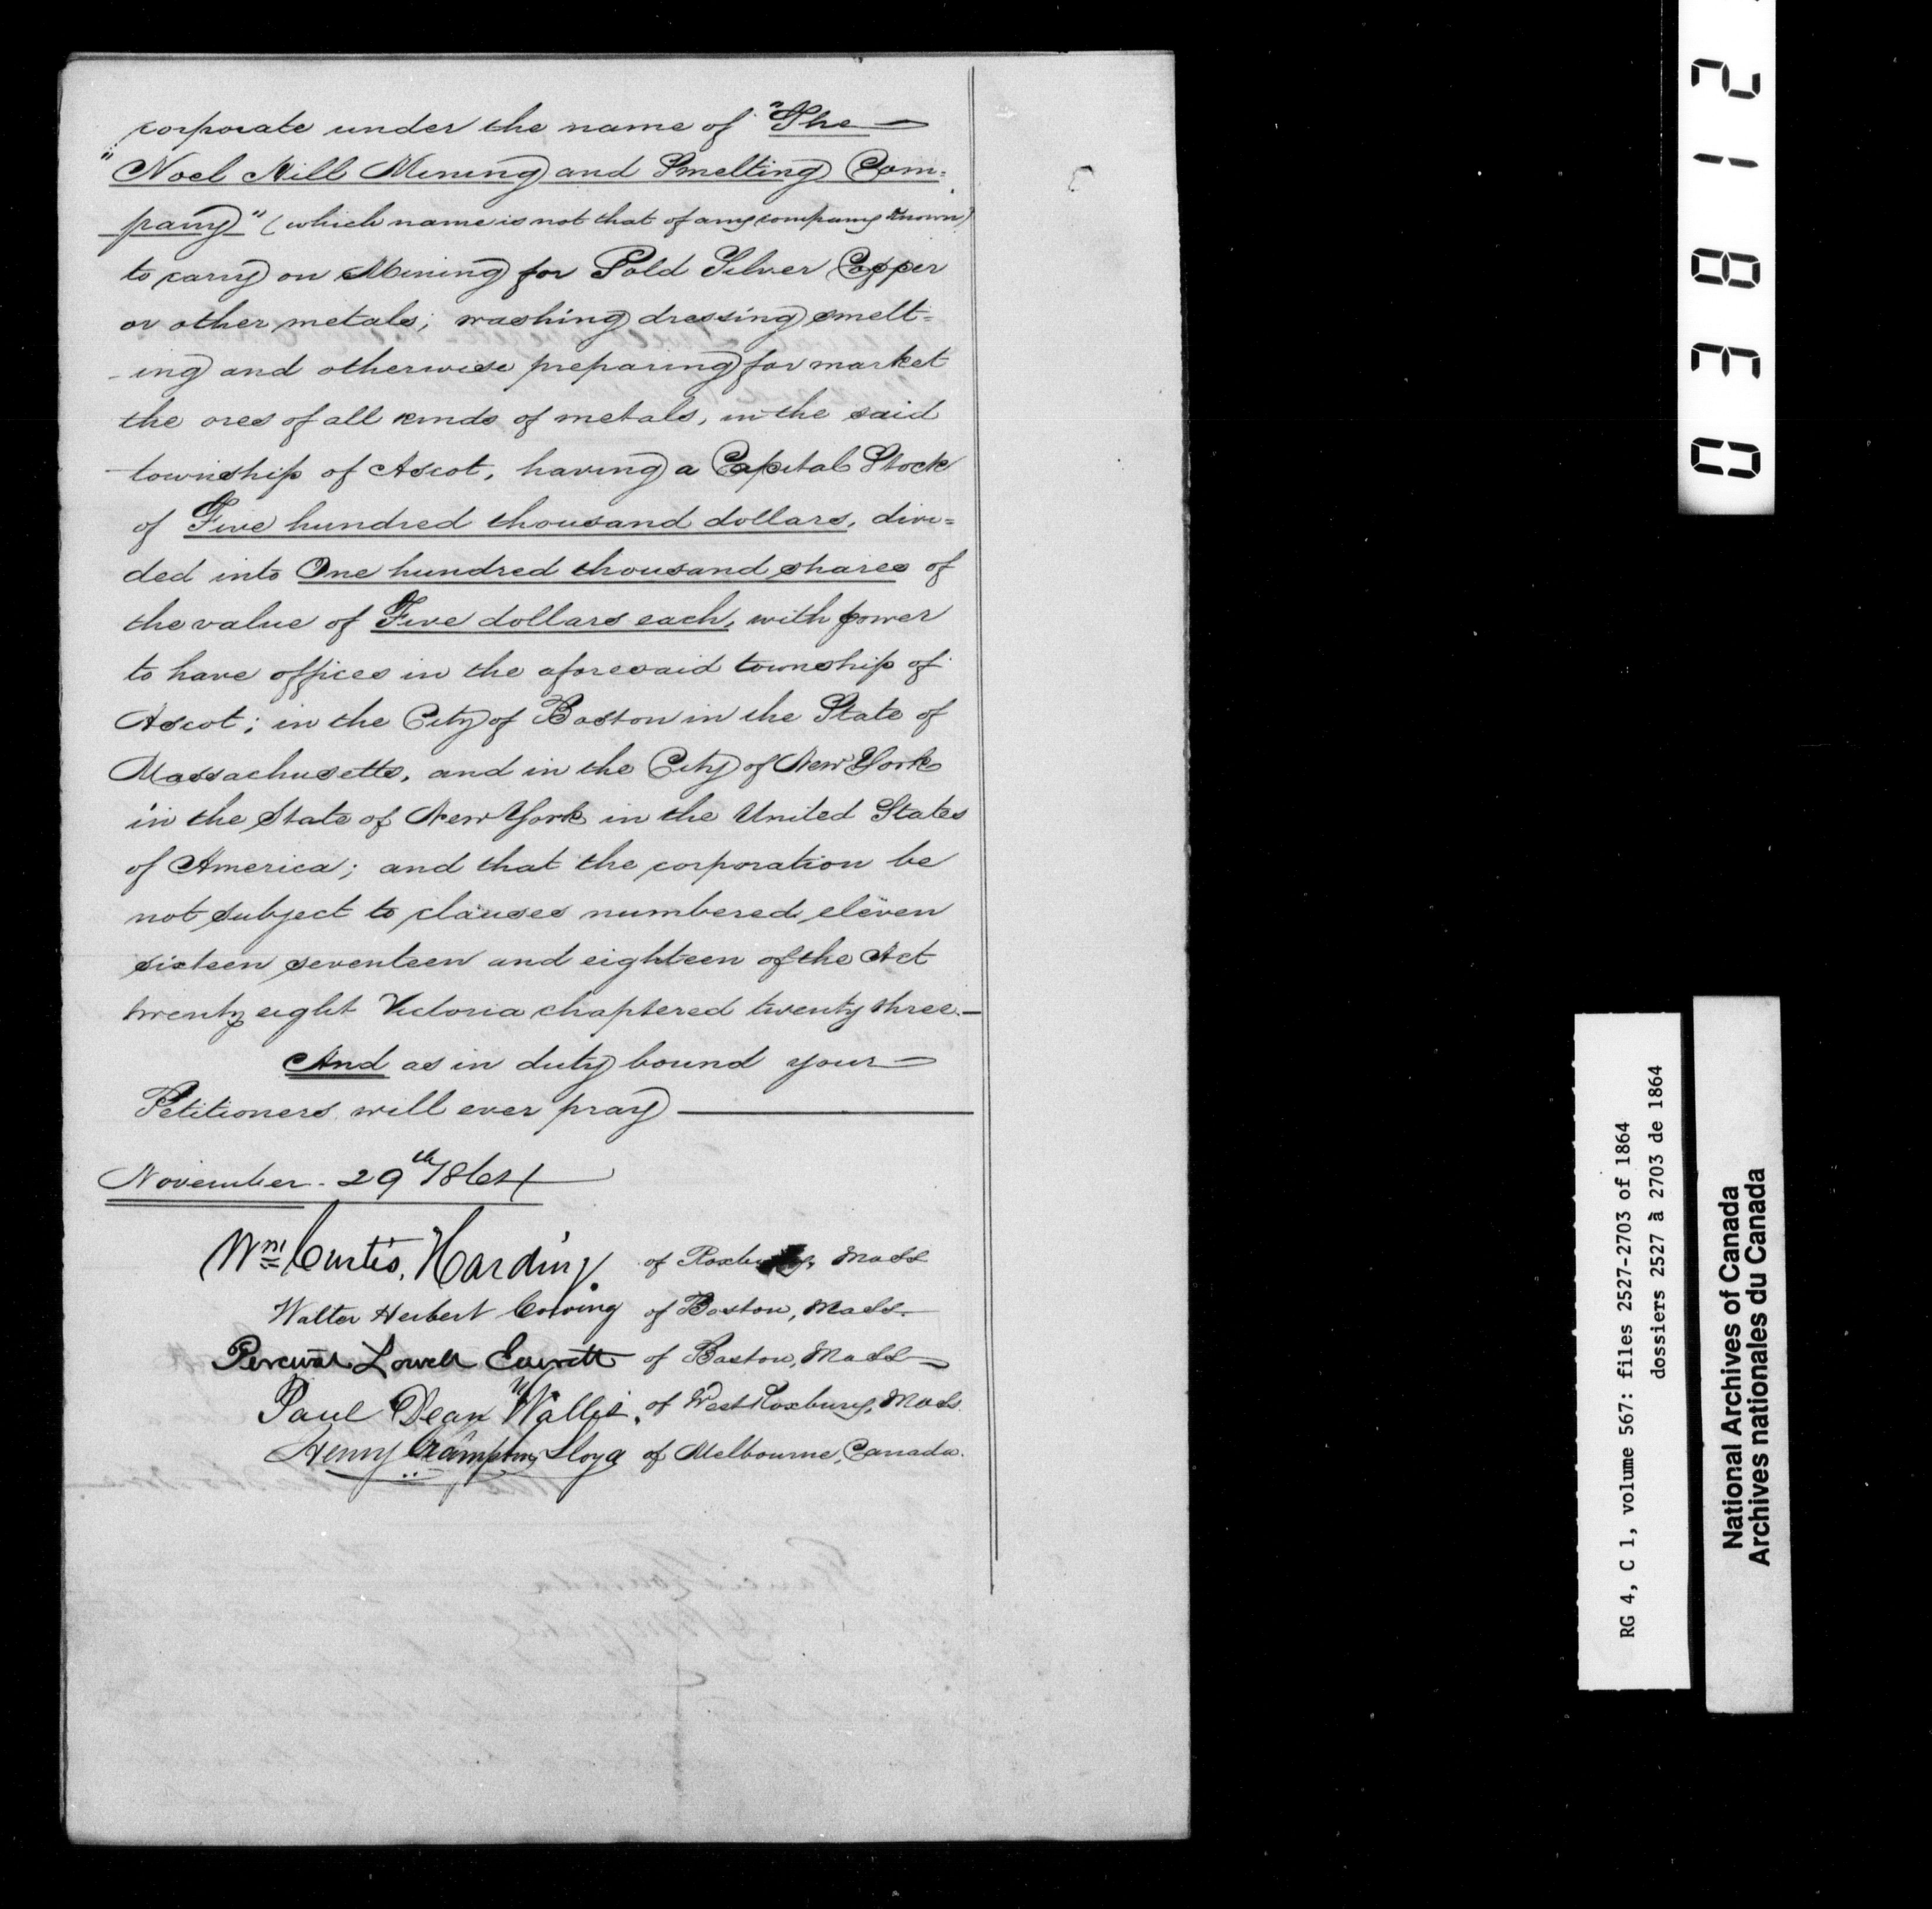 corporate under the name of "The
"Noel Hill Mining and Smelting Com=
pany" (which name is not that of any company known)
to carry on Mining for Gold Silver Copper
or other metals; washing dressing smelt=
-ing and otherwise preparing for market
the ores of all kinds of metals, in the said
township of Ascot, having a Capital Stock
of Five hundred thousand dollars, divi=
ded into One hundred thousand shares of
the value of Five dollars each, with power
to have offices in the aforesaid township of
Ascot; in the City of Boston in the State of
Massachusetts, and in the City of New York
in the State of New York in the United States
of America; and that the corporation be
not subject to clauses numbered eleven
sixteen seventeen and eighteen of the Act
twenty eight Victoria chaptered twenty three.—
And as in duty bound your
Petitioners will ever pray
November 29th 1864
Wm Curtis Harding. of Roxbury, Mass
Walter Herbert of Boston, Mass.
Percival Lowell Everett of Boston, Mass
Paul Dean Wallis. of West Roxbury, Mass.
Henry Crampton Lloyd of Melbourne, Canada.
03812
RG 4, C 1, volume 567: files 2527-2703 of 1864
dossiers 2527 à 2703 de 1864
National Archives of Canada
Archives nationales du Canada